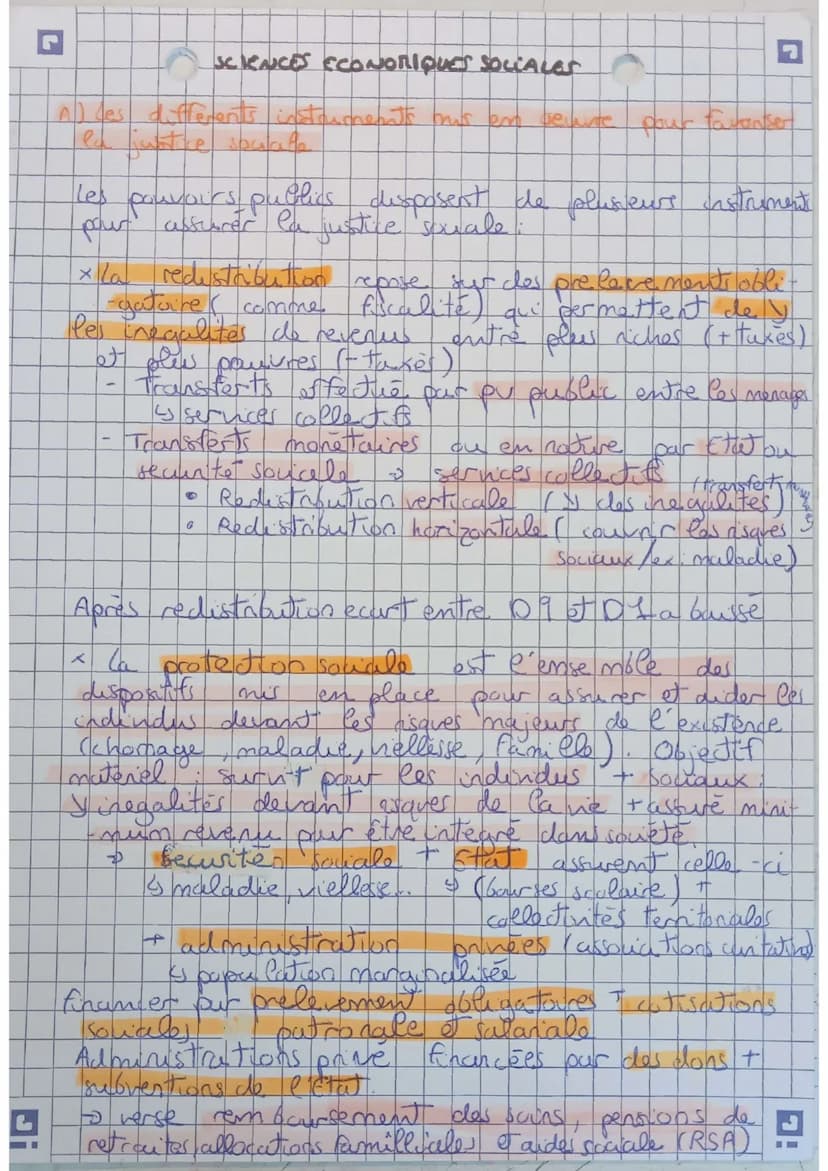 SCIENCES ECONOMIQUES SOCIALES
A) les différents instruments mis en oeuvre pour favoriser
la justice sociale
Les pouvoirs publics disposent de plusieurs instrument
pour assurer la justice sociale :
x La redistribution repose sur des prelevements obli-
-gatoire ( comme fiscalité) qui permettent de ↘
les inegalités de revenus entre plus riches (+ taxés)
et plus pauvres (- taxés)
- Transferts effectué par pv public entre les menages
↳ services collectifs
- Transferts monétaires ou en nature par Etat ou
securité sociale → services collectifs
• Redistribution verticale (↘ des inegalités) (transfert
• Redistribution horizontale ( couvrir les risques
sociaux /ex: maladie)
Après redistribution ecart entre D9 et D1 a baissé
x La protection sociale est l'ensemble des
dispositifs mis en place pour assurer et aider les
individus devant les risques majeurs de l'existence
(chomage, maladie, viellesse, famille). Objectif
matériel : survit pour les individus + sociaux :
↘ inegalités devant risques de la vie + assuré mini-
-mum revenu pour être integré dans société.
→ Securité sociale + Etat assurent celle-ci
↳ maladie, viellesse... ↳ (bourses scolaire) +
collectivités territoriales
+ administration privées (associations caritative)
↳ population marginalisée
financer par prelevement obligatoires + cotisations
sociales patronale et salariale
Administrations privé financées par des dons +
subventions de l'état.
→ verse remboursement des soins, pensions de
retraites, allocations familliales et aides sociale (RSA)